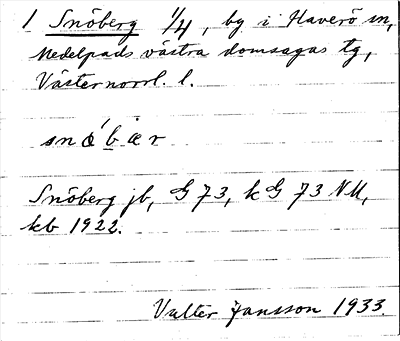 1 Snöberg 1/4, by i Haverö sn,
Medelpads västra domsagas tg,
Västernorrl. l.
snö́bær
Snöberg jb, G 73, k G 73 NM,
kb 1922.
Valter Jansson 1933.